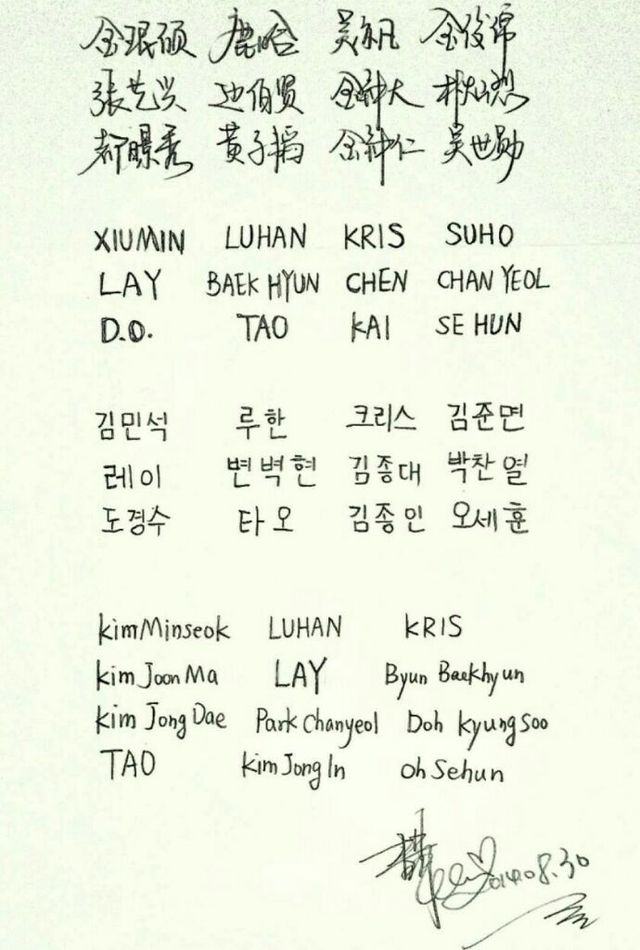 金珉硕 鹿晗 吴亦凡 金俊绵
張艺兴 边伯贤 金钟大 朴灿烈
都暻秀 黄子韬 金钟仁 吴世勋
XIUMIN LUHAN KRIS SUHO
LAY BAEK HYUN CHEN CHAN YEOL
D.O. TAO KAI SE HUN
김민석 루한 크리스 김준면
레이 변벽현 김종대 박찬열
도경수 타오 김종인 오세훈
kim Minseok LUHAN KRIS
kim Joon Ma LAY Byun Baekhyun
kim Jong Dae Park Chanyeol Doh kyung soo
TAO kim Jong In oh Sehun
2014.08.30